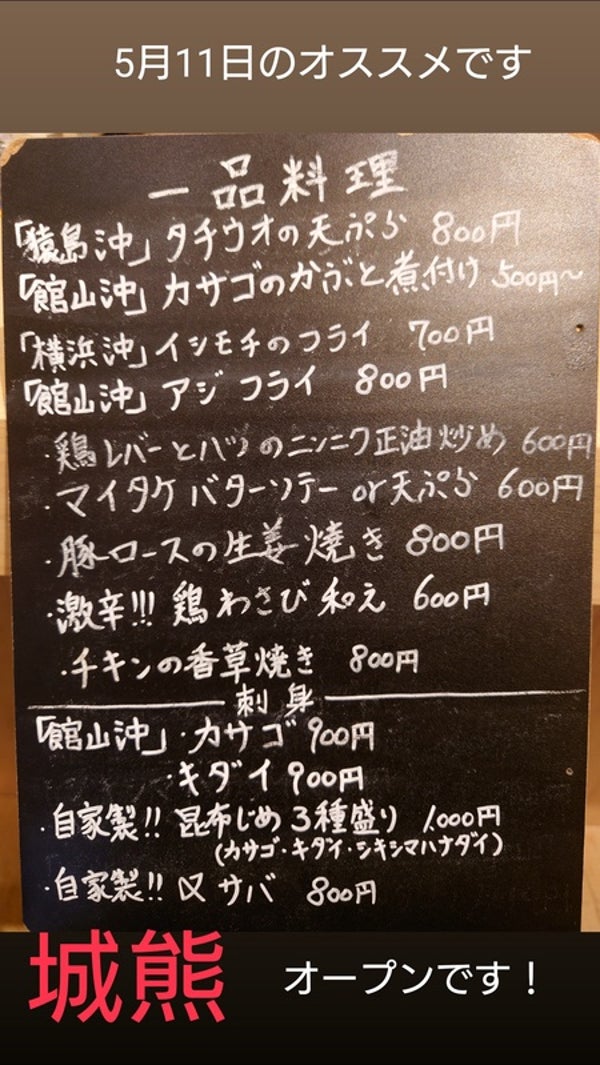 5月11日のオススメです
一品料理
「猿島沖」タチウオの天ぷら 800円
「館山沖」カサゴのかぶと煮付け 500円〜
「横浜沖」イシモチのフライ 700円
「館山沖」アジフライ 800円
・鶏レバーとハツのニンニク正油炒め 600円
・マイタケバターソテーor天ぷら 600円
・豚ロースの生姜焼き 800円
・激辛!!! 鶏わさび和え 600円
・チキンの香草焼き 800円
刺身
「館山沖」・カサゴ 900円
・キダイ 900円
・自家製!! 昆布じめ3種盛り 1,000円
(カサゴ・キダイ・シキシマハナダイ)
・自家製!! 〆サバ 800円
城熊 オープンです！